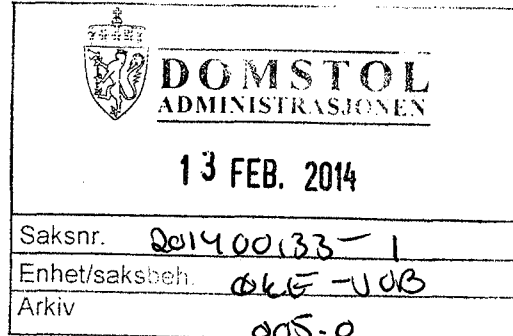 DOMSTOL
ADMINISTRASJONEN
13 FEB. 2014
Saksnr. 201400133-1
Enhet/saksbeh. ØKE-VOB
Arkiv 005.0